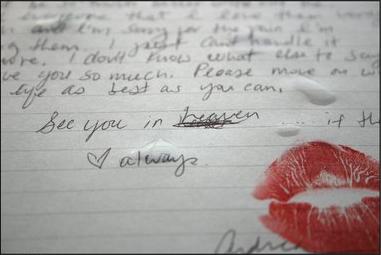 everyone that I love than
and I'm sorry for the pain I'm
them. I just can't handle it
more. I don't know what else to say
ve you so much. Please move on w
life as best as you can.
See you in heaven ... if the
♡ always.
Andrea